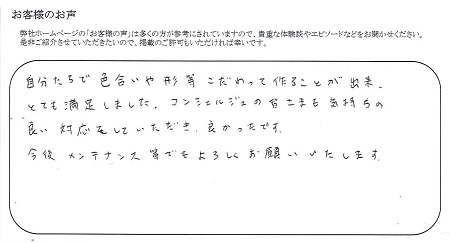 お客様のお声
弊社ホームページの「お客様の声」は多くの方が参考にされていますので、貴重な体験談やエピソードなどをお聞かせください。
是非ご紹介させていただきたいので、掲載のご許可もいただければ幸いです。
自分たちで色合いや形等こだわって作ることが出来、
とても満足しました。コンシェルジュの皆さまも気持ちの
良い対応をしていただき、良かったです。
今後メンテナンス等でもよろしくお願いいたします。